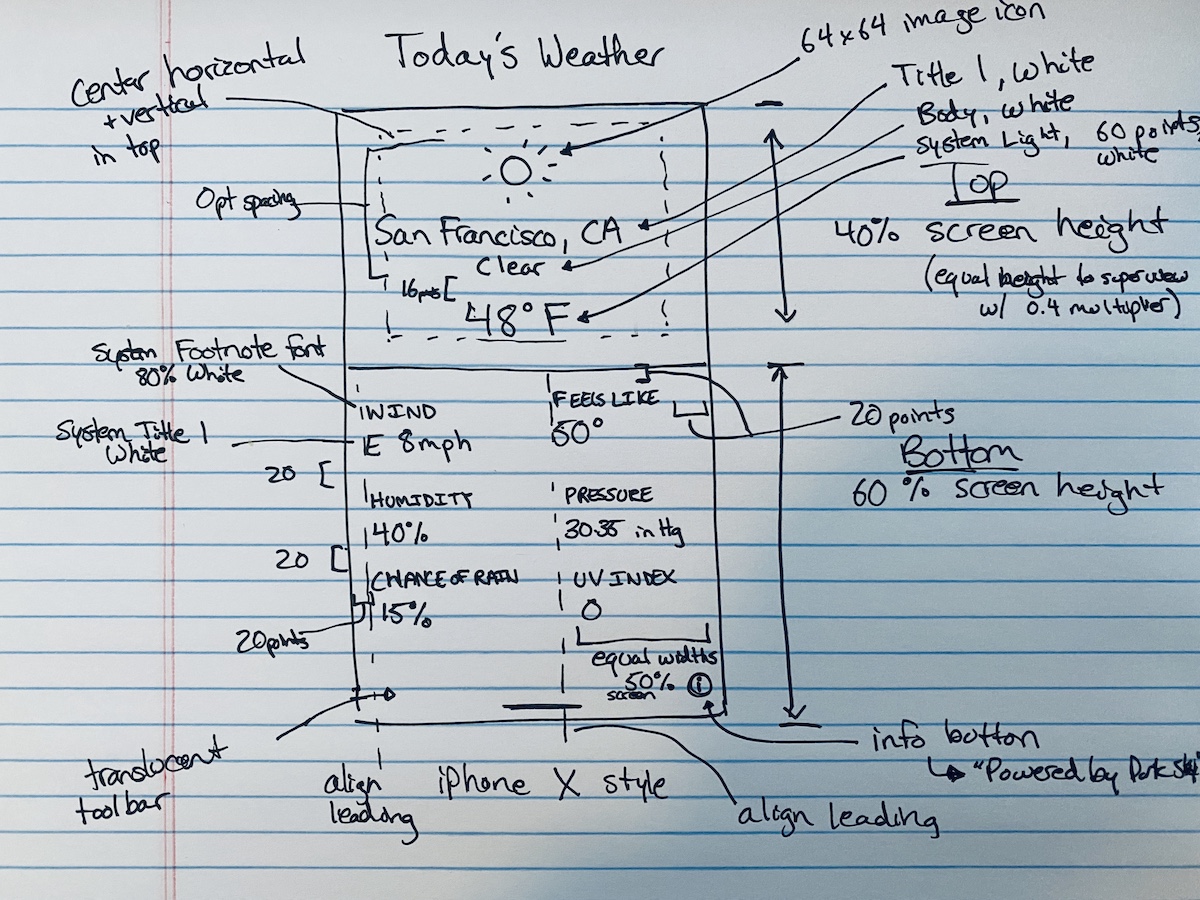 Today's Weather
64x64 image icon
Center horizontal
+ vertical
in top
Title 1, White
Body, white
System Light, 60 points,
white
Top
Opt spacing
San Francisco, CA
40% screen height
Clear
(equal height to superview
w/ 0.4 multiplier)
16pts
48° F
System Footnote font
80% White
WIND
FEELS LIKE
20 points
System Title 1
White
E 8mph
50°
Bottom
60% screen height
20
HUMIDITY
PRESSURE
40%
30.35 inHg
20
CHANCE OF RAIN
UV INDEX
15%
0
20 points
equal widths
50%
screen
i
translucent
toolbar
info button
"Powered by Dark Sky"
align
leading
iPhone X style
align leading